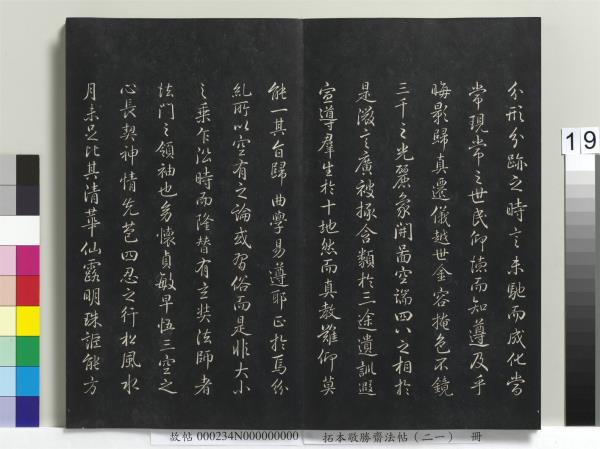 分形分跡之時言未馳而成化當
常現常之世民仰德而知遵及乎
晦影歸真遷儀越世金容掩色不鏡
三千之光麗象開圖空端四八之相於
是微言廣被拯含類於三途遺訓遐
宣導羣生於十地然而真教難仰莫
能一其旨歸曲學易遵耶正於焉紛
糺所以空有之論或習俗而是非大小
之乘乍沿時而隆替有玄奘法師者
法門之領袖也幼懷貞敏早悟三空之
心長契神情先苞四忍之行松風水
月未足比其清華仙露明珠詎能方
故帖 000234N000000000 拓本敬勝齋法帖（二一） 冊
19